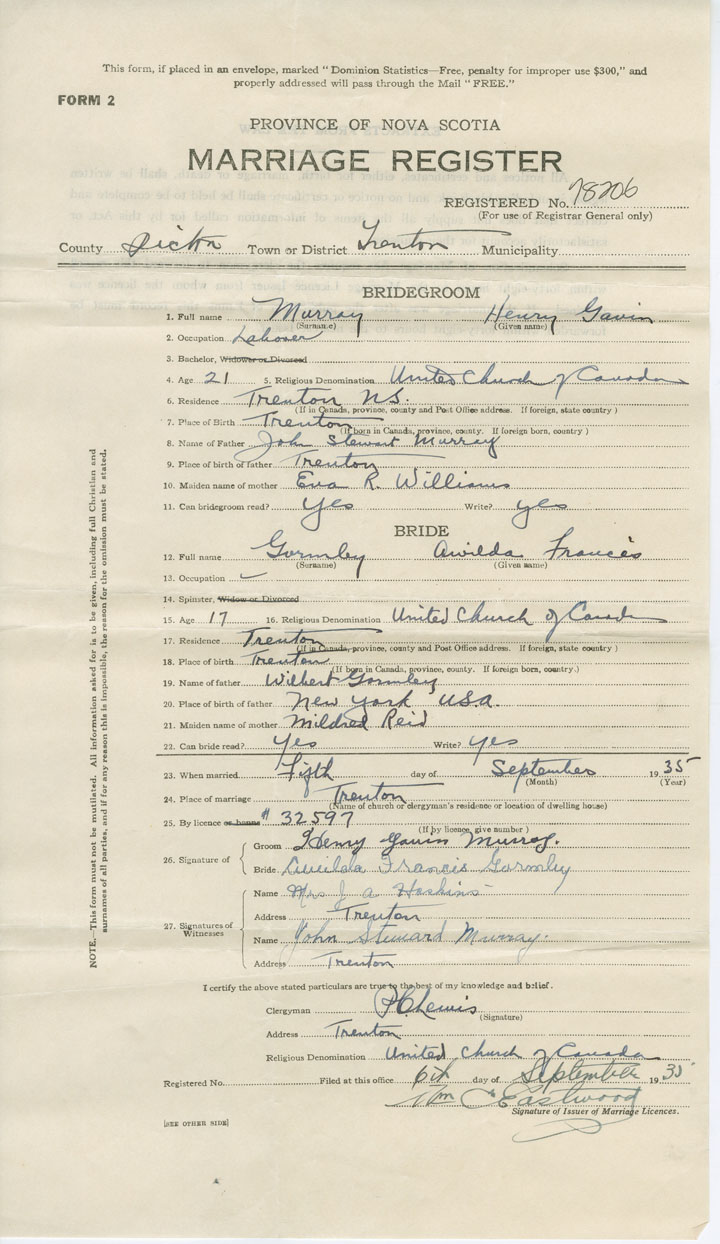 This form, if placed in an envelope, marked "Dominion Statistics—Free, penalty for improper use $300," and
properly addressed will pass through the Mail "FREE."
FORM 2
PROVINCE OF NOVA SCOTIA
MARRIAGE REGISTER
REGISTERED No. 78206
(For use of Registrar General only)
County Pictou Town or District Trenton Municipality
BRIDEGROOM
1. Full name Murray Henry Gavin
(Surname) (Given name)
2. Occupation Labourer
3. Bachelor, Widower or Divorced
4. Age 21 5. Religious Denomination United Church of Canada
6. Residence Trenton N.S.
(If in Canada, province, county and Post Office address. If foreign, state country)
7. Place of Birth Trenton
(If born in Canada, province, county. If foreign born, country)
8. Name of Father John Stewart Murray
9. Place of birth of father Trenton
10. Maiden name of mother Eva R. Williams
11. Can bridegroom read? Yes Write? yes
BRIDE
12. Full name Gormley Awilda Francis
(Surname) (Given name)
13. Occupation
14. Spinster, Widow or Divorced
15. Age 17 16. Religious Denomination United Church of Canada
17. Residence Trenton
(If in Canada, province, county and Post Office address. If foreign, state country)
18. Place of birth Trenton
(If born in Canada, province, county. If foreign born, country.)
19. Name of father Wilbert Gormley
20. Place of birth of father New York USA.
21. Maiden name of mother Mildred Reid
22. Can bride read? Yes Write? Yes
23. When married Fifth day of September 1935
(Month) (Year)
24. Place of marriage Trenton
(Name of church or clergyman's residence or location of dwelling house)
25. By licence or banns # 32597
(If by licence, give number)
26. Signature of
Groom Henry Gavin Murray.
Bride Awilda Francis Gormley
27. Signatures of Witnesses
Name Mrs J A Hoskins
Address Trenton
Name John Steward Murray.
Address Trenton
I certify the above stated particulars are true to the best of my knowledge and belief.
Clergyman
(Signature)
Address Trenton
Religious Denomination United Church of Canada
Registered No. Filed at this office 6th day of September 1935
Wm C Eastwood
Signature of Issuer of Marriage Licences.
[SEE OTHER SIDE]
NOTE.—This form must not be mutilated. All information asked for is to be given, including full Christian and
surnames of all parties, and if for any reason this is impossible, the reason for the omission must be stated.